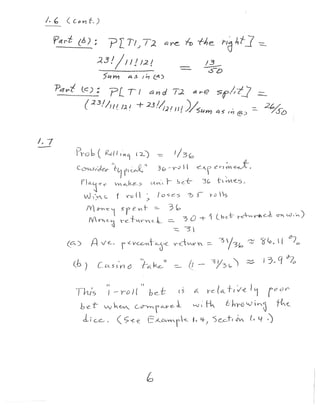 1.6 (Cont.)
Part (b): P[T1,T2 are to the right] =
23!/11!12! / Sum as in (a) = 13/50
Part (c): P[T1 and T2 are split] =
(23!/11!12! + 23!/12!11!)/Sum as in (a) = 26/50
1.7
Prob(Rolling 12) = 1/36
Consider "typical" 36-roll experiment.
Player makes unit bet 36 times.
Wins 1 roll; loses 35 rolls
Money spent = 36
Money returned = 30 + 1 (bet returned on win)
= 31
(a) Ave. percentage return = 31/36 ≈ 86.11 %
(b) Casino "take" = (1 - 31/36) ≈ 13.9 %
This "1-roll" bet is a relatively poor
bet when compared with throwing the
dice. (See Example 1.4, Section 1.4.)
6